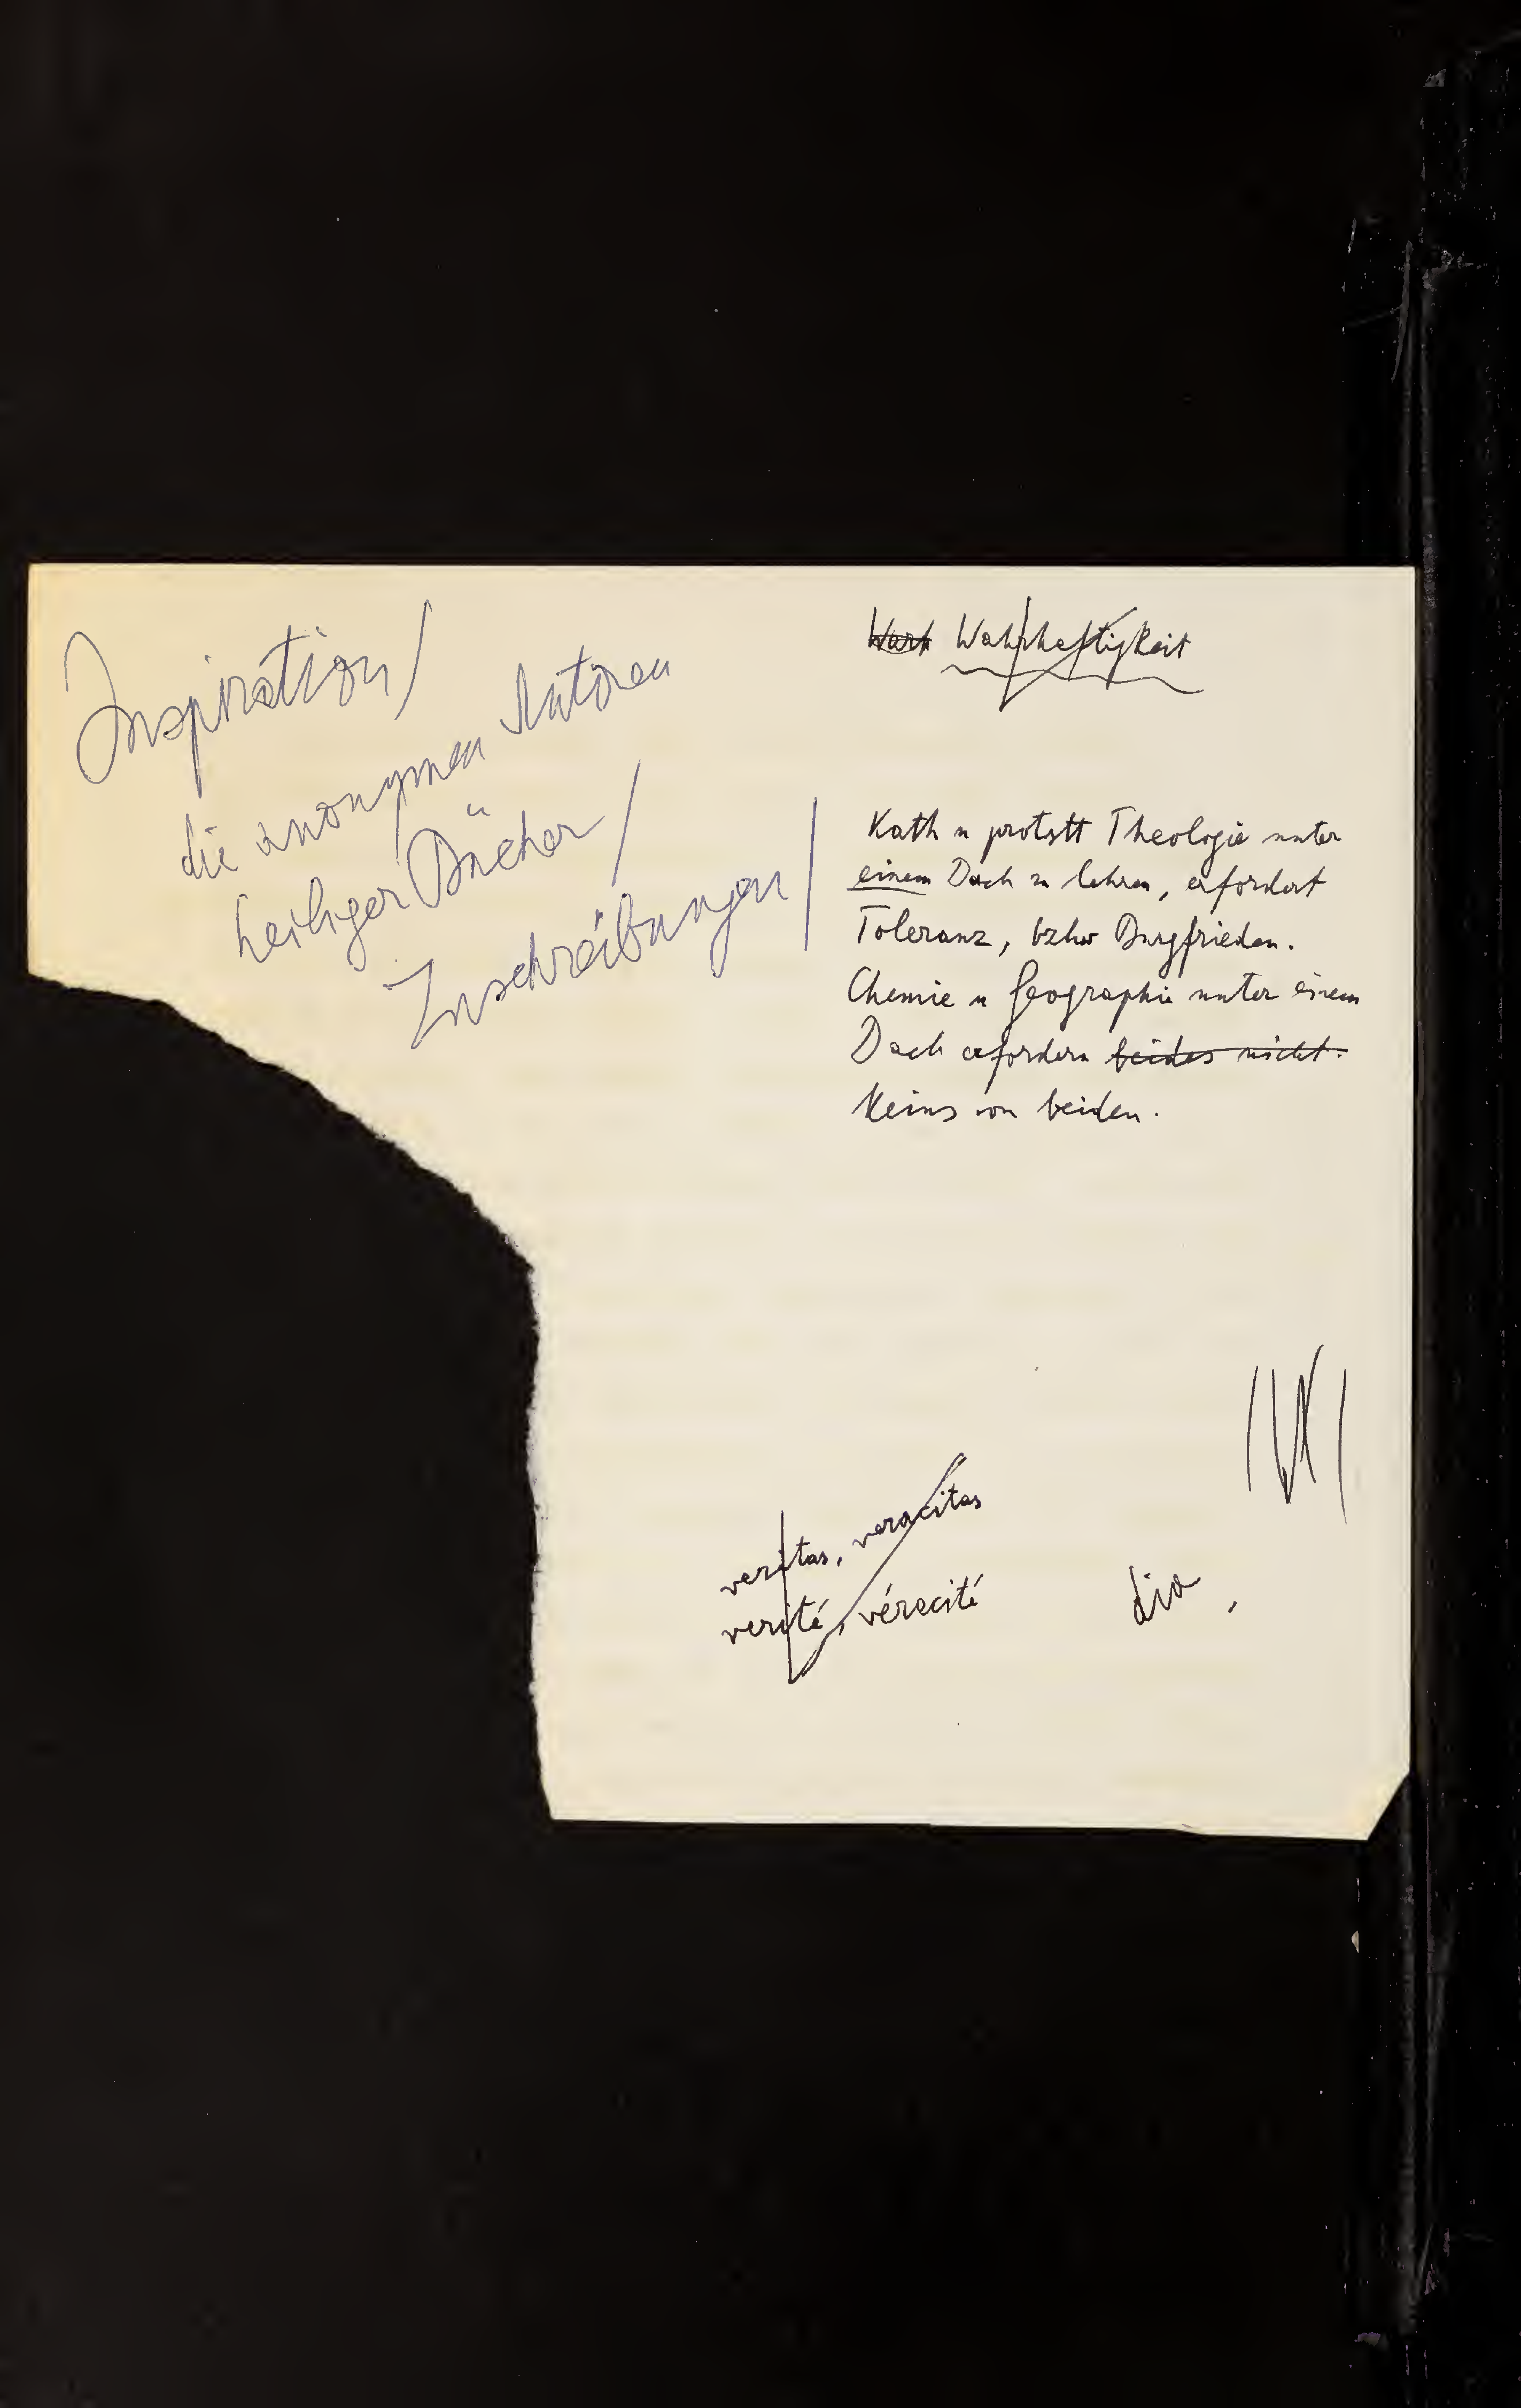 Inspiration/
die anonymen Autoren
heiliger Bücher/
Zuschreibungen/
Wahrhaftigkeit
Kath u protstt Theologie unter
einem Dach zu lehren, erfordert
Toleranz, bzhw Burgfrieden.
Chemie u Geographie unter einem
Dach erfordern beides nicht.
Keins von beiden.
veritas, veracitas
verité, véracité